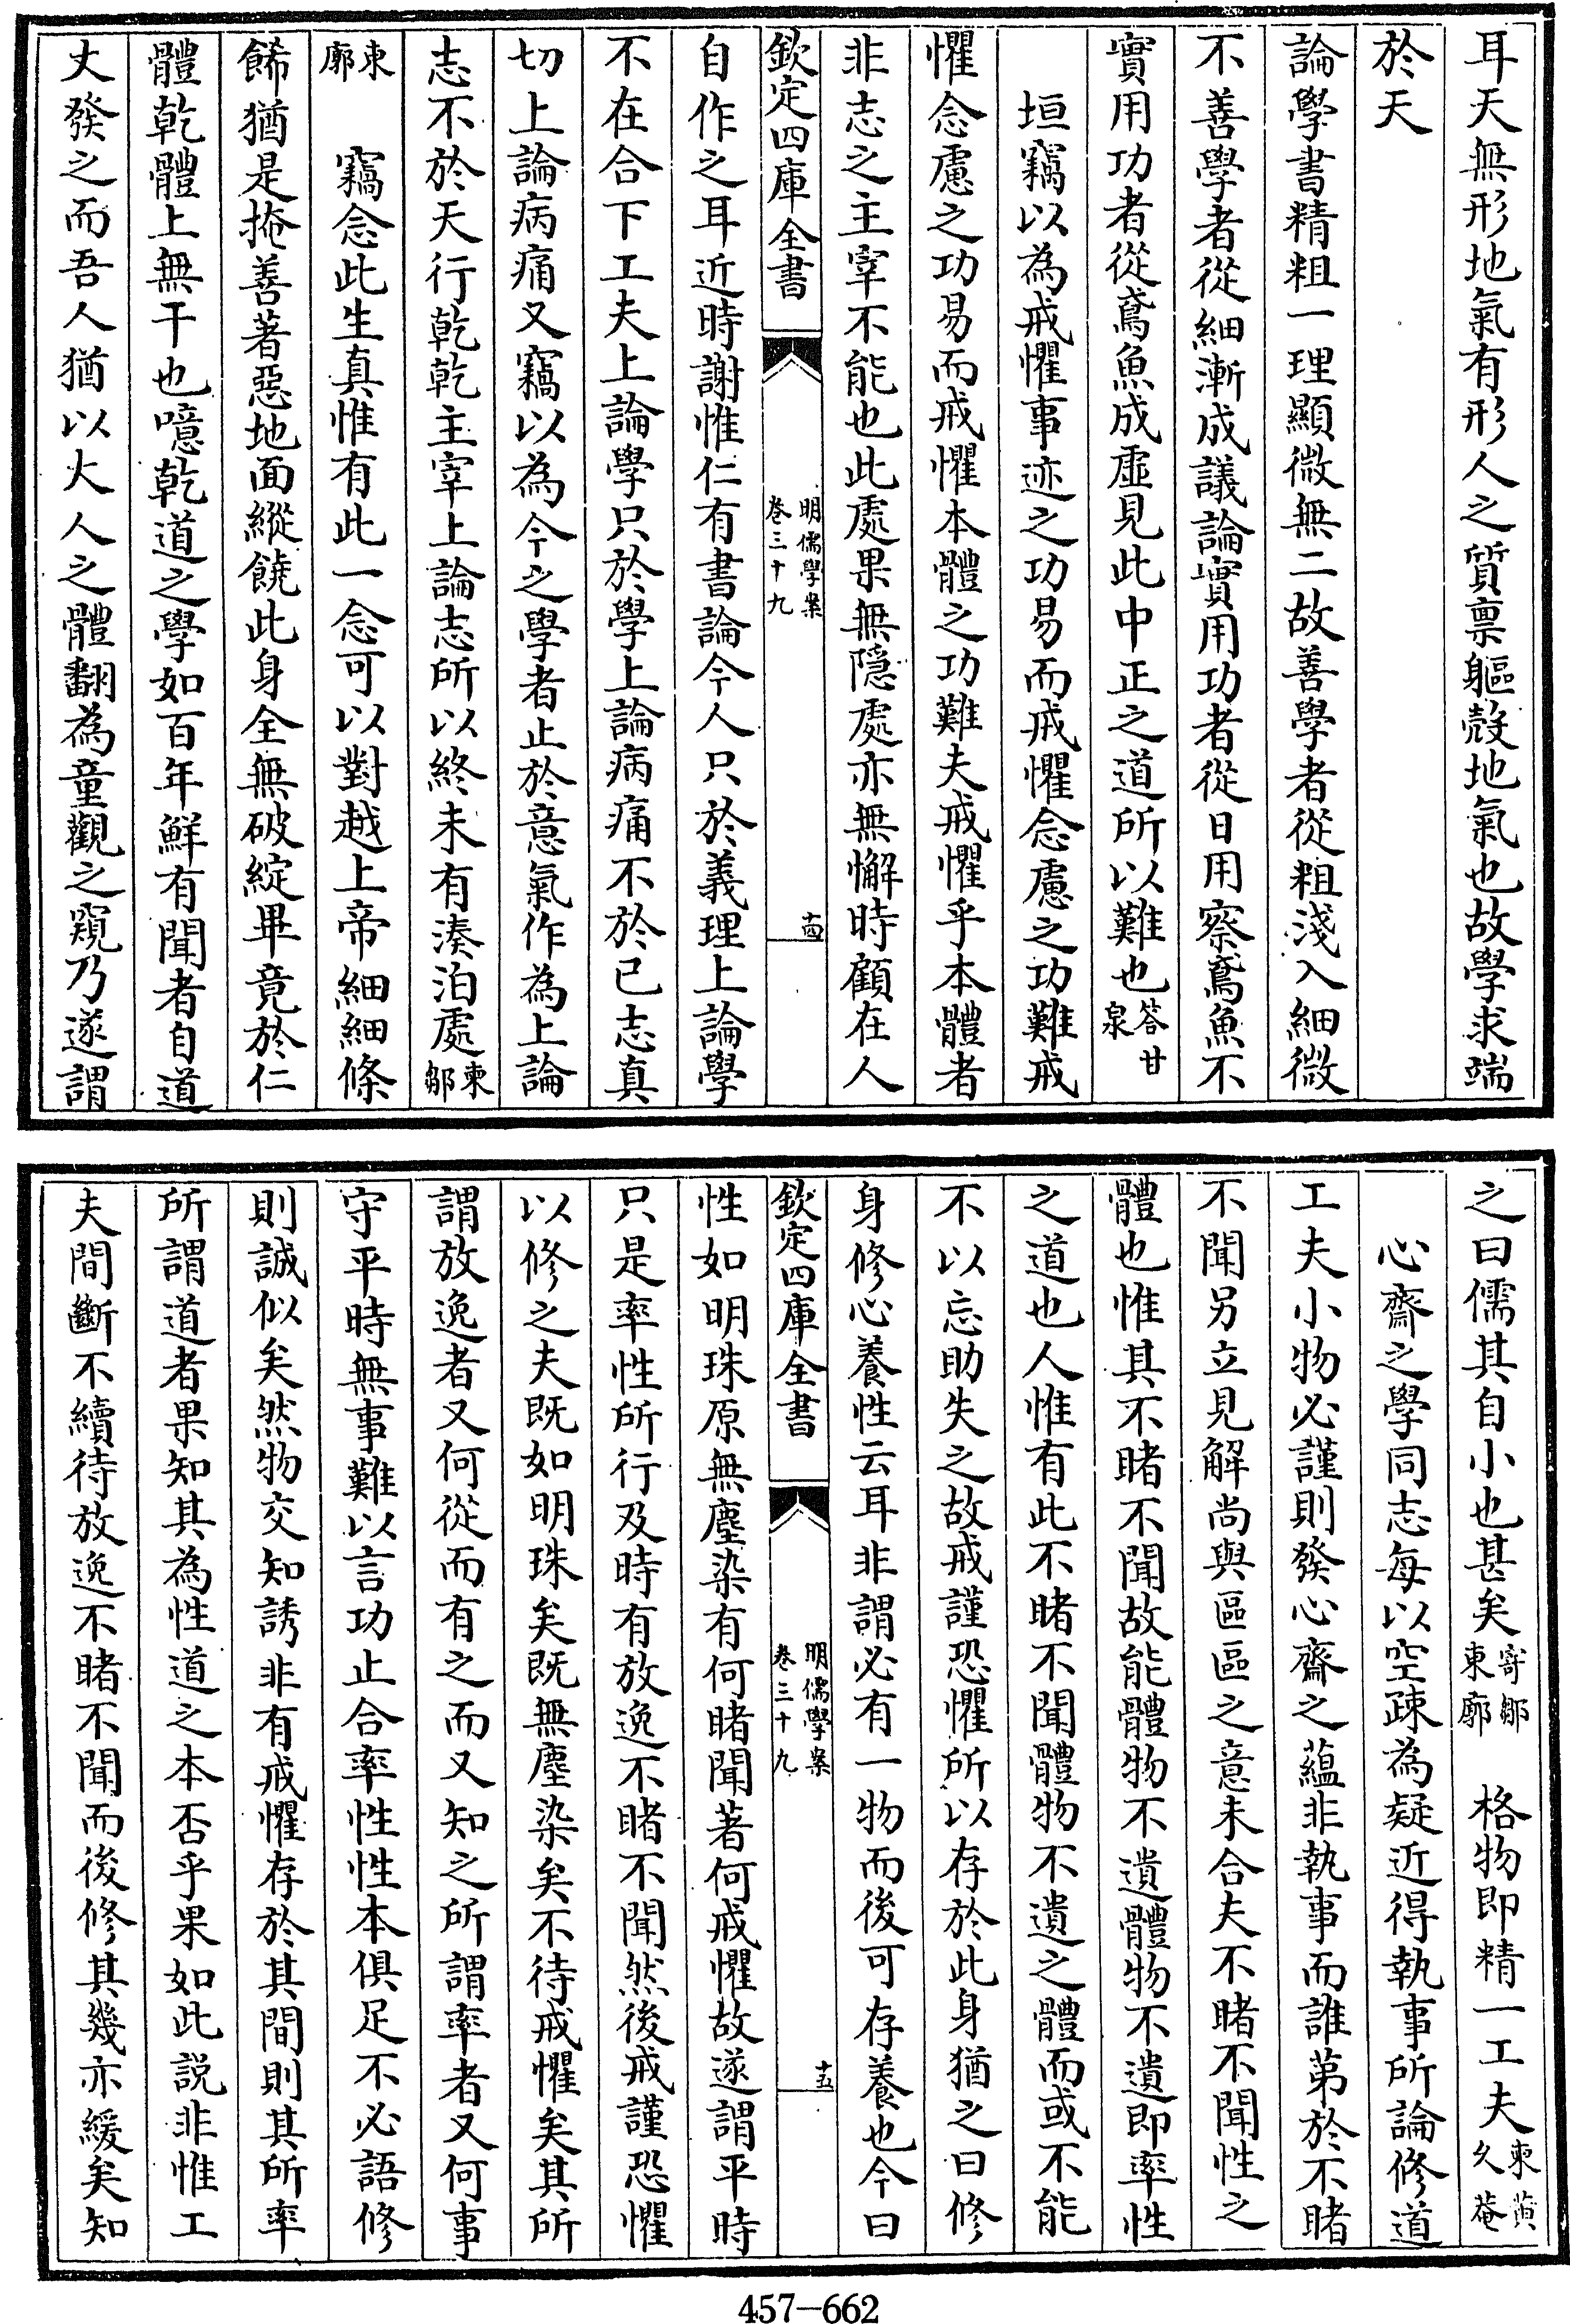 耳天無形地氣有形人之質禀軀殼地氣也故學求端
於天
論學書精粗一理顯微無二故善學者從粗淺入細微
不善學者從細漸成議論實用功者從日用察鳶魚不
實用功者從鳶魚成虛見此中正之道所以難也答甘泉
垣竊以為戒懼事迹之功易而戒懼念慮之功難戒
懼念慮之功易而戒懼本體之功難夫戒懼乎本體者
非志之主宰不能也此處果無隱處亦無懈時顧在人
欽定四庫全書
明儒學案
卷三十九
十四
自作之耳近時謝惟仁有書論今人只於義理上論學
不在合下工夫上論學只於學上論病痛不於已志真
切上論病痛又竊以為今之學者止於意氣作為上論
志不於天行乾乾主宰上論志所以終未有湊泊處柬鄒
東廓　竊念此生真惟有此一念可以對越上帝細細條
餙猶是掩善著惡地面縱饒此身全無破綻畢竟於仁
體乾體上無干也噫乾道之學如百年鮮有聞者自道
丈發之而吾人猶以大人之體翻為童觀之窺乃遂謂
之曰儒其自小也甚矣寄鄒東廓　格物即精一工夫柬黄久菴
心齋之學同志每以空疎為疑近得執事所論修道
工夫小物必謹則發心齋之蘊非執事而誰第於不睹
不聞另立見解尚與區區之意未合夫不睹不聞性之
體也惟其不睹不聞故能體物不遺體物不遺即率性
之道也人惟有此不睹不聞體物不遺之體而或不能
不以忘助失之故戒謹恐懼所以存於此身猶之曰修
身修心養性云耳非謂必有一物而後可存養也今曰
欽定四庫全書
明儒學案
卷三十九
十五
性如明珠原無塵染有何睹聞著何戒懼故遂謂平時
只是率性所行及時有放逸不睹不聞然後戒謹恐懼
以修之夫既如明珠矣既無塵染矣不待戒懼矣其所
謂放逸者又何從而有之而又知之所謂率者又何事
守平時無事難以言功止合率性性本俱足不必語修
則誠似矣然物交知誘非有戒懼存於其間則其所率
所謂道者果知其為性道之本否乎果如此説非惟工
夫間斷不續待放逸不睹不聞而後修其幾亦緩矣知
457-662